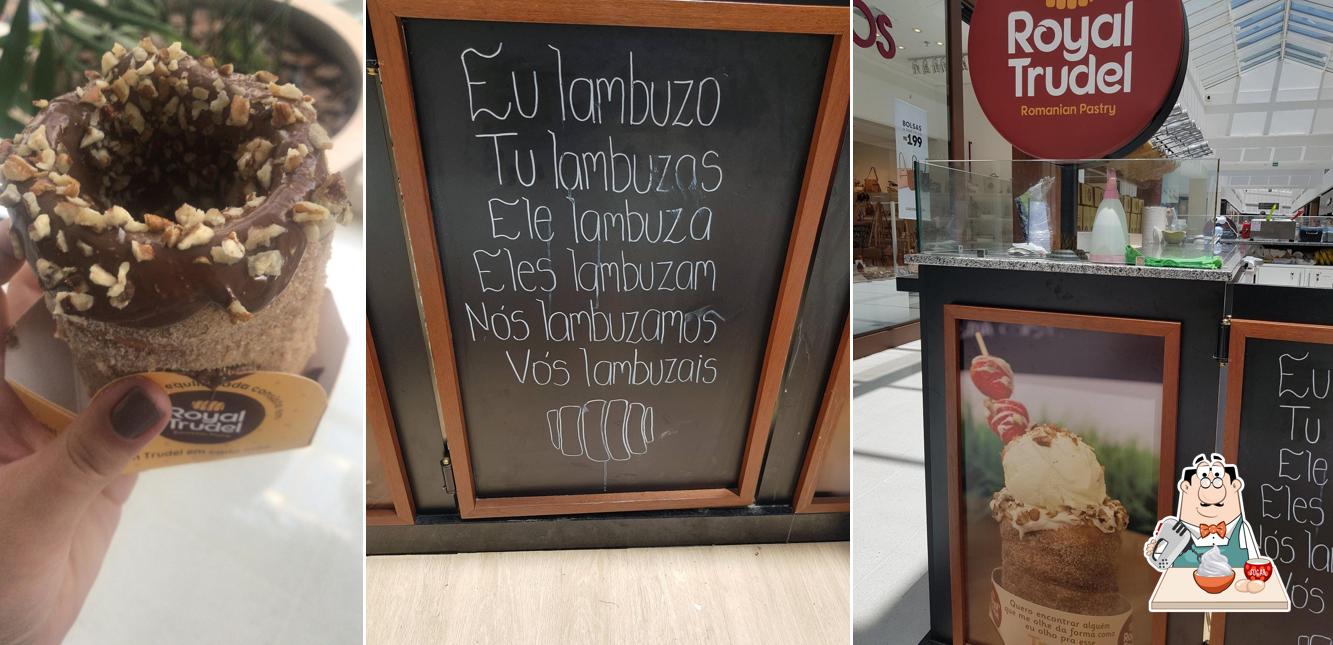 Royal
Trudel
Trudel em cada
Eu lambuzo
Tu lambuzas
Ele lambuza
Eles lambuzam
Nós lambuzamos
Vós lambuzais
OS
BOLSAS
199
Royal
Trudel
Romanian Pastry
Eu
Tu
Ele
Eles
Nós la
Vós
Quero encontrar alguém
que me olhe da forma como
eu olho pra esse
SUGAR